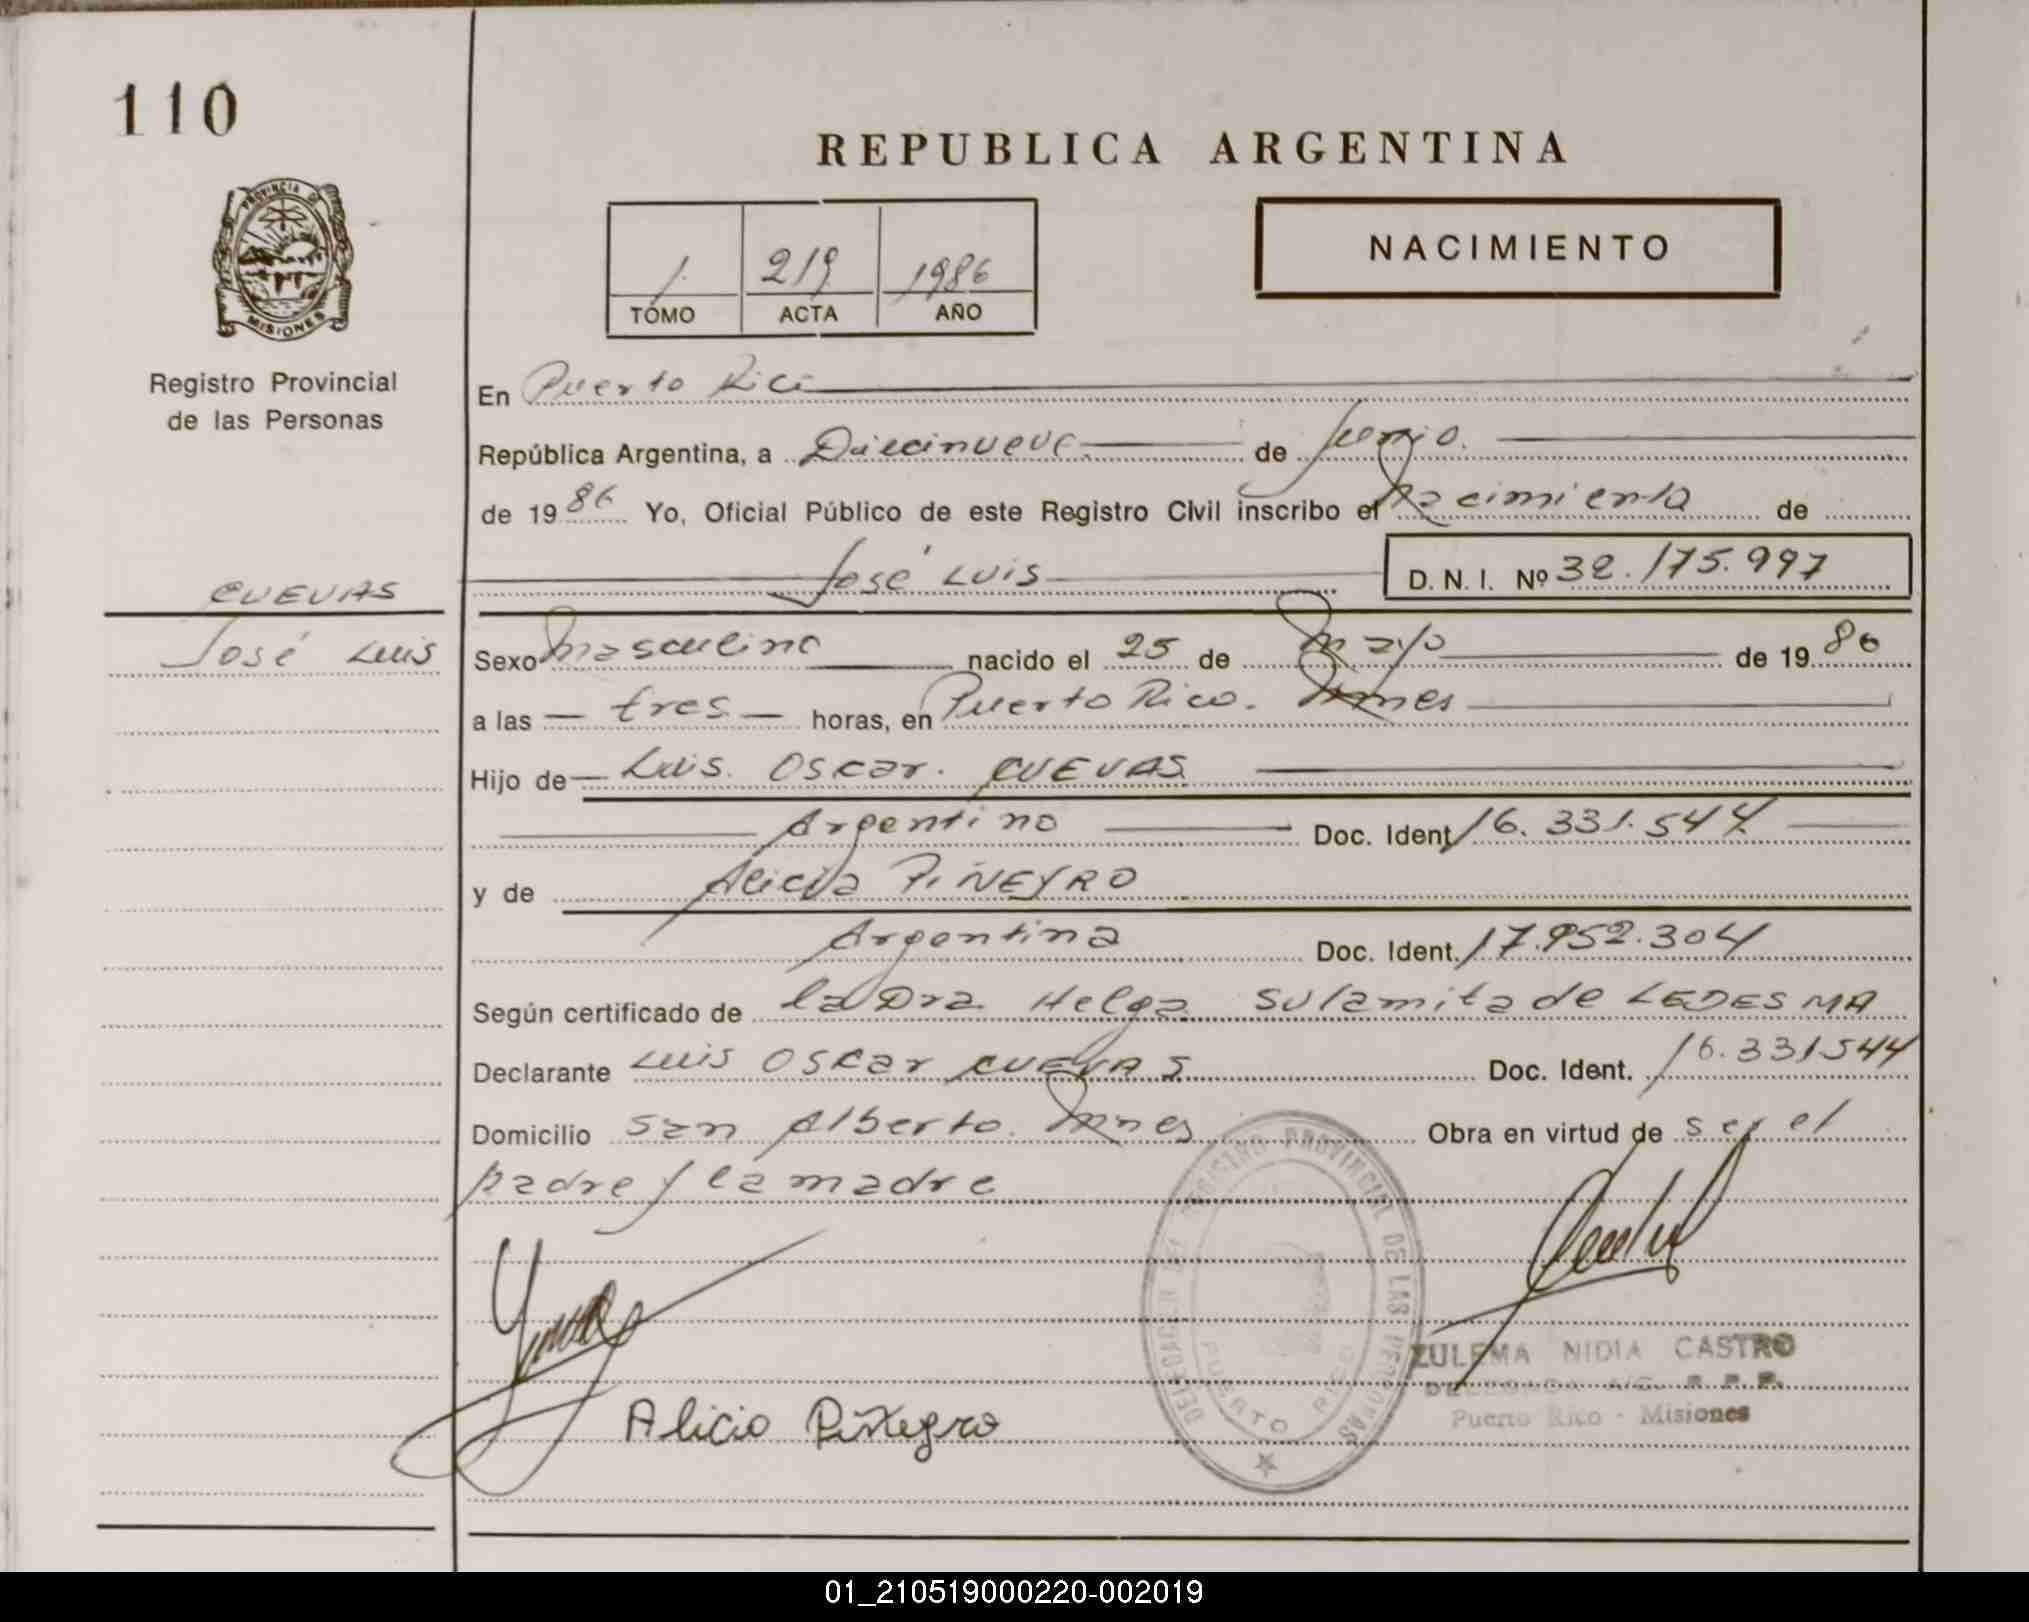 110
REPUBLICA ARGENTINA
PROVINCIA DE
MISIONES
1 219 1986
TOMO ACTA AÑO
NACIMIENTO
Registro Provincial
de las Personas
En Puerto Rico
República Argentina, a Diecinueve de Junio.
de 1986 Yo, Oficial Público de este Registro Civil inscribo el nacimiento de
José Luis D. N. I. Nº 32.175.997
CUEVAS
José Luis
Sexo masculino nacido el 25 de mayo de 1986
a las tres horas, en Puerto Rico. Mnes
Hijo de Luis Oscar CUEVAS
Argentino Doc. Ident. 16.331.544
y de Alicia PIÑEYRO
Argentina Doc. Ident. 17.952.304
Según certificado de la Dra Helga Sulamita de LEDESMA
Declarante Luis Oscar CUEVAS Doc. Ident. 16.331544
Domicilio San Alberto. Mnes Obra en virtud de ser el
padre y la madre
DELEGACION DEL REGISTRO PROVINCIAL DE LAS PERSONAS
PUERTO RICO
ZULEMA NIDIA CASTRO
DELEGADA A/C. R. P. P.
Puerto Rico - Misiones
Alicio Piñeyro
01_210519000220-002019